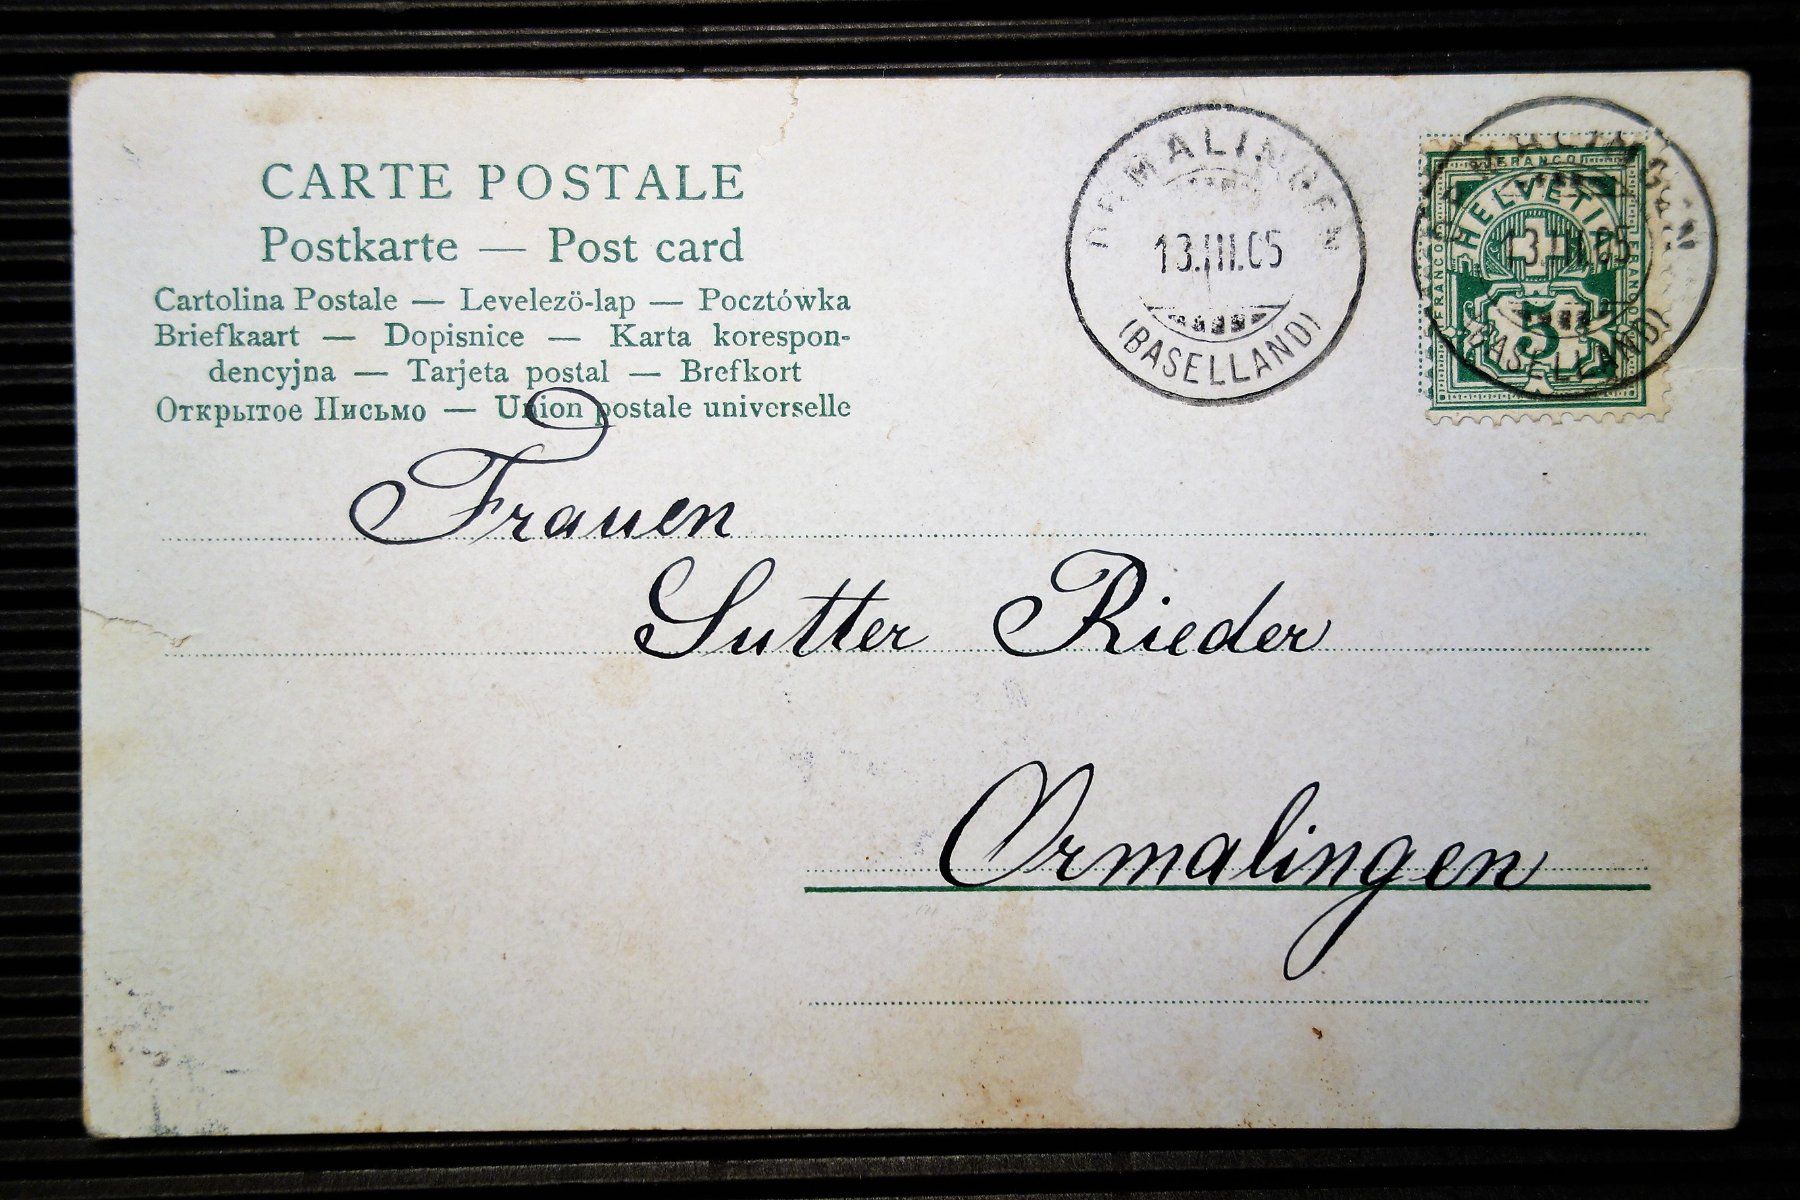 CARTE POSTALE
Postkarte — Post card
Cartolina Postale — Levelezö-lap — Pocztówka
Briefkaart — Dopisnice — Karta korespon-
dencyjna — Tarjeta postal — Brefkort
Открытое Письмо — Union postale universelle
ORMALINGEN
13.III.05
(BASELLAND)
FRANCO
HELVETIA
FRANCO
FRANCO
5
ORMALINGEN
13.III.05
(BASELLAND)
Frauen
Sutter Rieder
Ormalingen